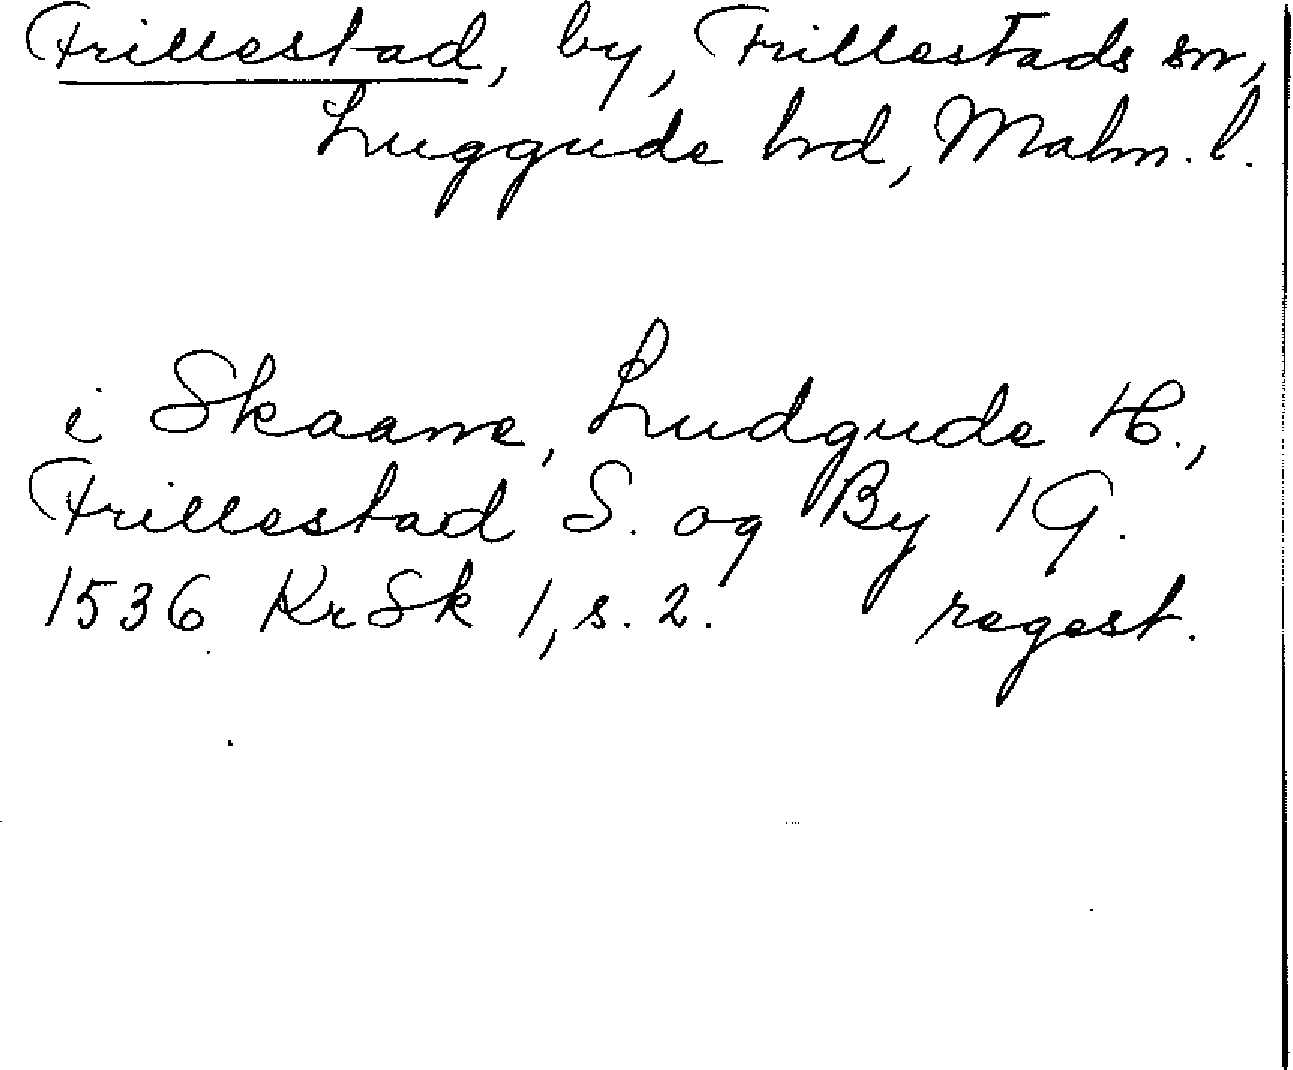 Frillestad, by, Frillestads sn,
Luggude hrd, Malm. l.
i Skaane, Ludgude H.,
Frillestad S. og By 1 G.
1536 KrSk 1, s. 2. regest.